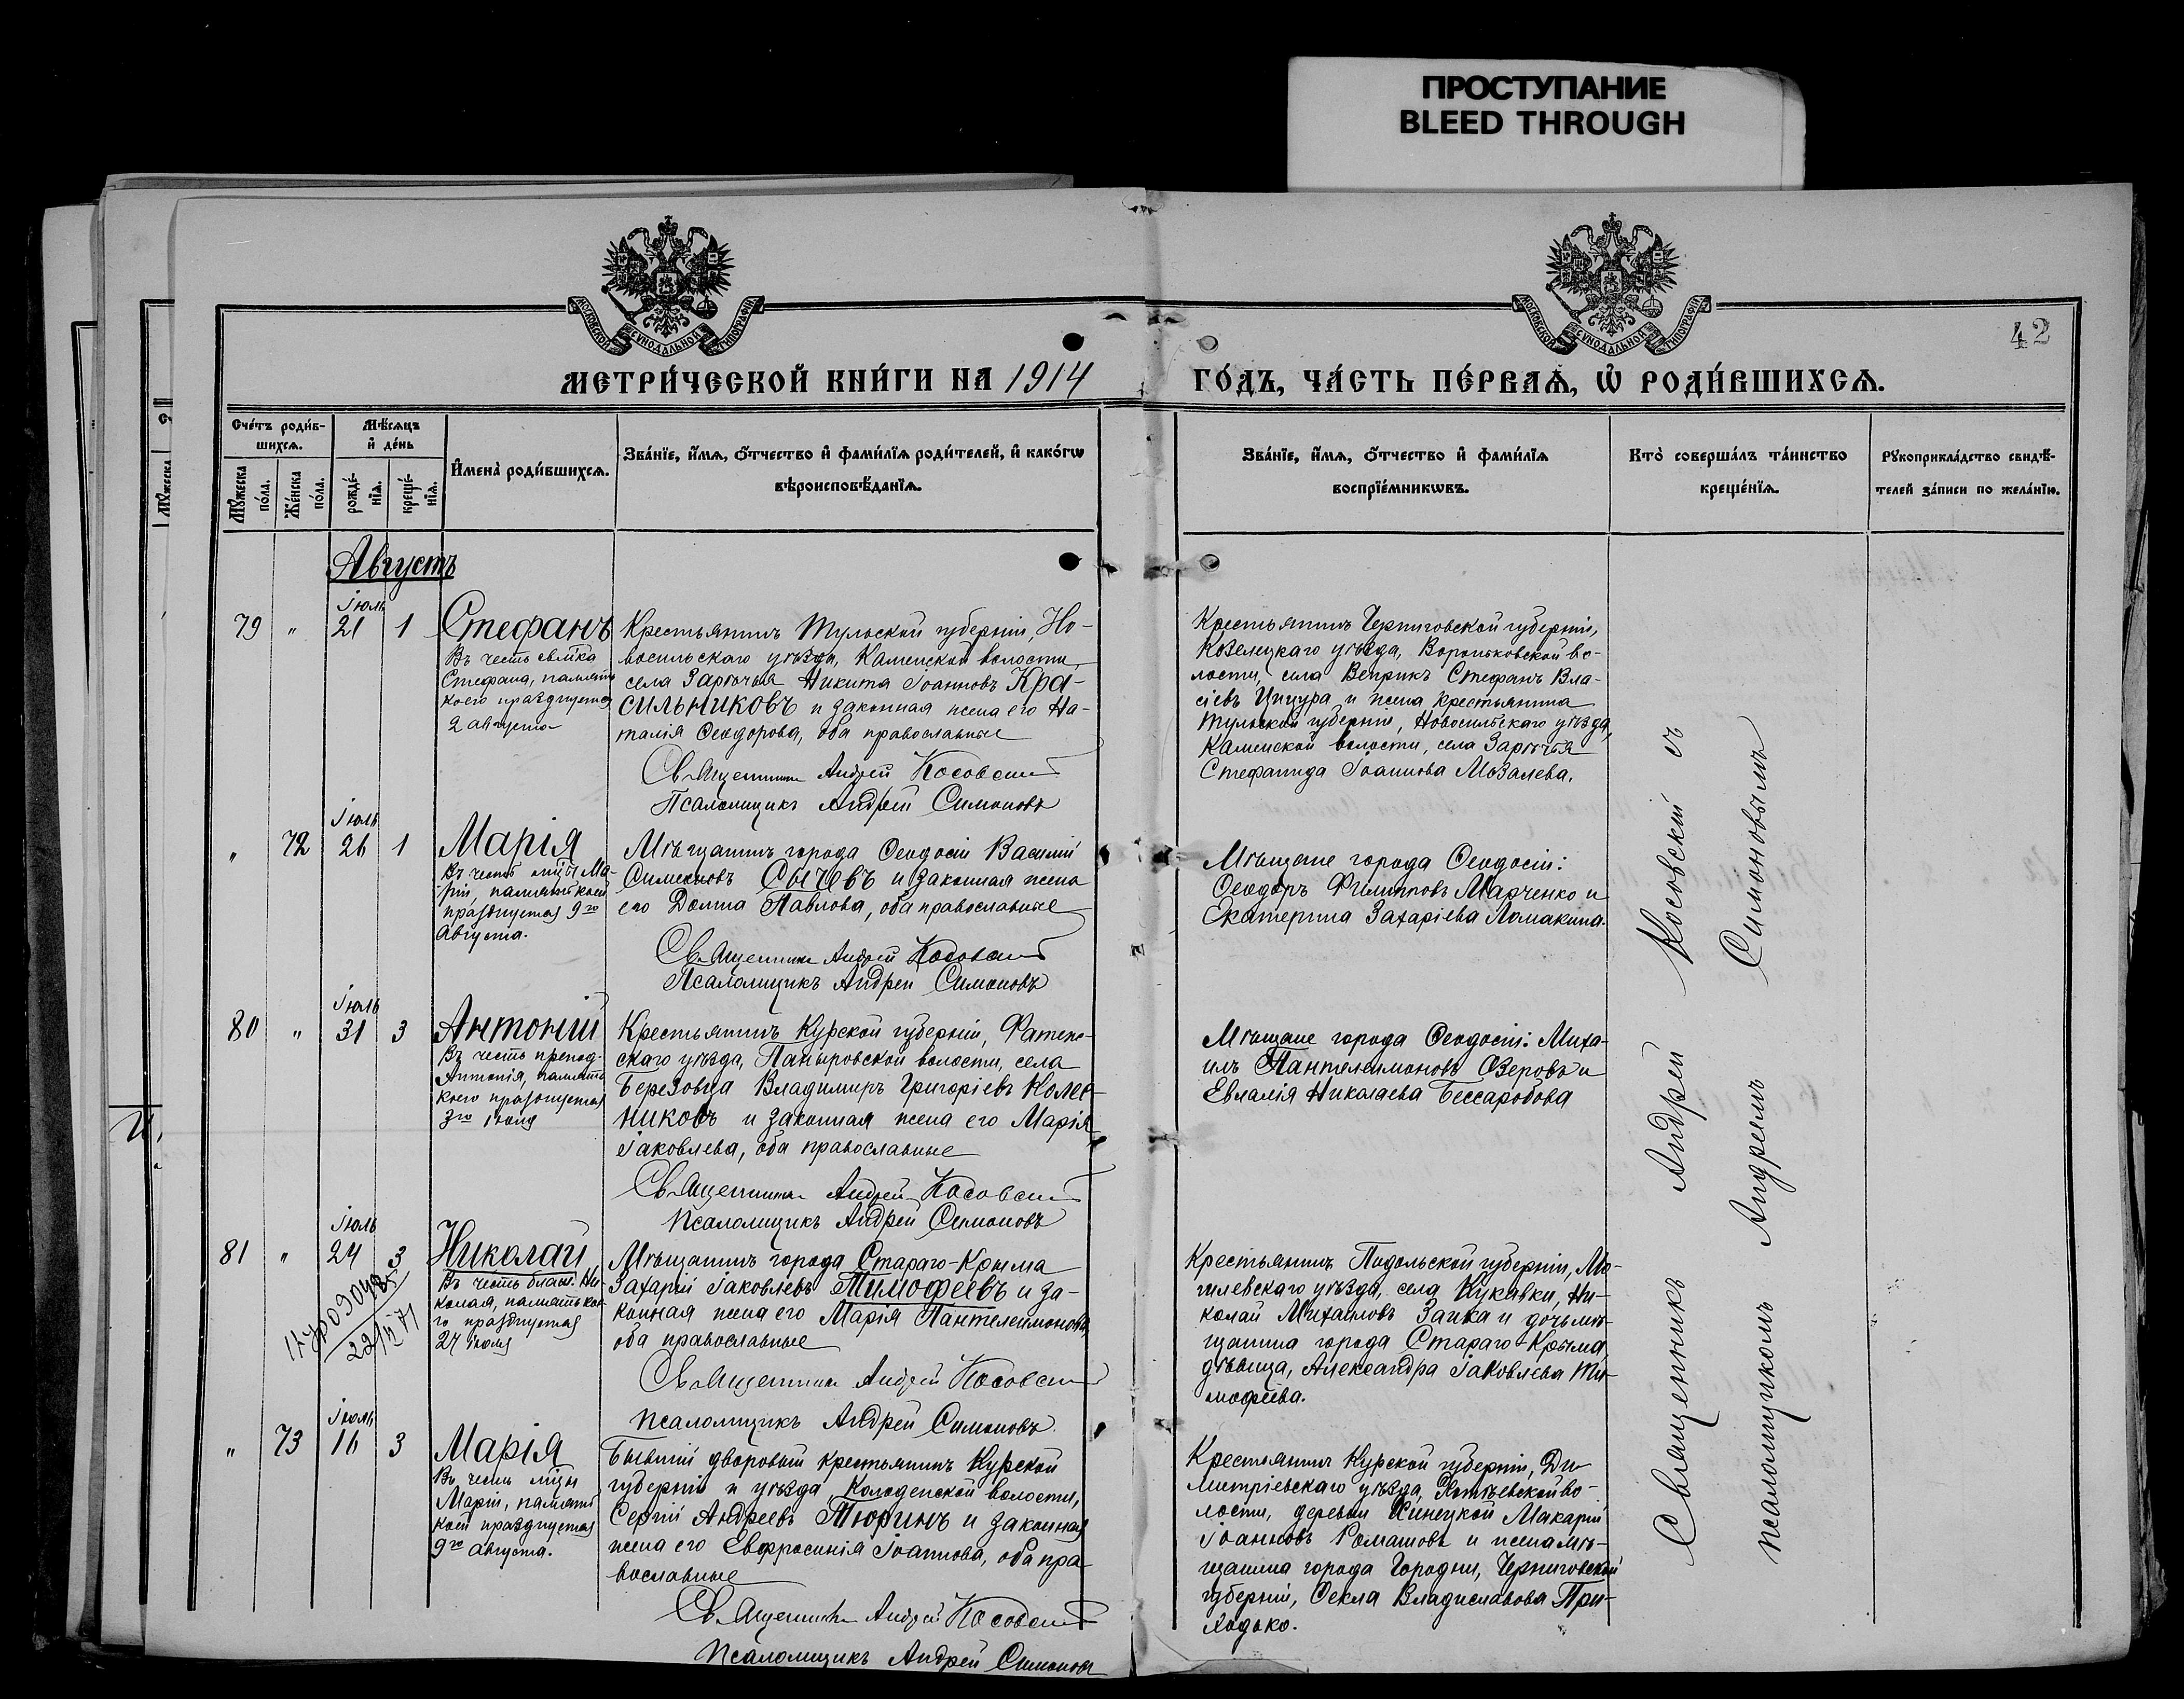 ПРОСТУПАНИЕ
BLEED THROUGH
МОСКОВСКОЙ СѴНОДАЛЬНОЙ ТИПОГРАФІИ
МОСКОВСКОЙ СѴНОДАЛЬНОЙ ТИПОГРАФІИ
42
МЕТРИ́ЧЕСКОЙ КНИ́ГИ НА 1914
ГО́ДЪ, ЧА́СТЬ ПЕ́РВАѦ, Ѡ҆ РОДИ́ВШИХСѦ.
Сче́тъ роди́в-
шихсѧ.
Мѣ́сѧцъ
и҆ де́нь
Мꙋ́жеска по́ла.
Же́нска по́ла.
рожде́-
нїѧ.
креще́-
нїѧ.
И҆мена̀ роди́вшихсѧ.
Зва́нїе, и҆́мѧ, ѻ҆́тчество и҆ фами́лїѧ роди́телей, и҆ како́гѡ
вѣроисповѣ́данїѧ.
Зва́нїе, и҆́мѧ, ѻ҆́тчество и҆ фами́лїѧ
воспрїе́мникѡвъ.
Кто̀ соверша́лъ та́инство
креще́нїѧ.
Рꙋкоприкла́дство свидѣ́-
телей за́писи по жела́нїю.
Августъ
Іюль
79 " 21 1 Стефанъ
Въ честь свмка
Стефана, память
коего празднуется
2 августа
Крестьянинъ Тульской губерніи, Но-
восильскаго уѣзда, Каменской волости,
села Зарѣчья Никита Іоанновъ Кра-
сильниковъ и законная жена его На-
талія Ѳеодорова, оба православные
Священникъ Андрей Косовскій
Псаломщикъ Андрей Симоновъ
Крестьянинъ Черниговской губерніи,
Козелецкаго уѣзда, Вороньковской во-
лости, села Веприкъ Стефанъ Вла-
сіевъ Цицура и жена крестьянина
Тульской губерніи, Новосильскаго уѣзда,
Каменской волости, села Зарѣчья
Стефанида Іоаннова Мозалева.
Іюль
" 72 26 1 Марія
Въ честь мцы Ма-
ріи, память коей
празднуется 9го
Августа.
Мѣщанинъ города Ѳеодосіи Василій
Симеоновъ Сычевъ и законная жена
его Домна Павлова, оба православные
Священникъ Андрей Косовскій
Псаломщикъ Андрей Симоновъ
Мѣщане города Ѳеодосіи:
Ѳеодоръ Филипповъ Марченко и
Екатерина Захаріева Ломакина.
Іюль
80 " 31 3 Антоній
Въ честь препод.
Антонія, память
коего празднуется
3го іюля
Крестьянинъ Курской губерніи, Фатеж-
скаго уѣзда, Паныровской волости, села
Березовца Владимиръ Григоріевъ Колес-
никовъ и законная жена его Марія
Іаковлева, оба православные
Священникъ Андрей Косовскій
Псаломщикъ Андрей Симоновъ
Мѣщане города Ѳеодосіи: Миха-
илъ Пантелеимоновъ Озеровъ и
Евлалія Николаева Бессаробова
Іюль
81 " 24 3 Николай
Въ честь блаж. Ни-
колая, память кое-
го празднуется
27 іюля
Мѣщанинъ города Стараго-Крыма
Захарій Іаковлевъ Тимофеевъ и за-
конная жена его Марія Пантелеимонова,
оба православные
Священникъ Андрей Косовскій
Псаломщикъ Андрей Симоновъ
Крестьянинъ Подольской губерніи, Мо-
гилевскаго уѣзда, села Кукавки, Ни-
колай Михаиловъ Заика и дочь мѣ-
щанина города Стараго-Крыма,
дѣвица, Александра Іаковлева Ти-
мофеева.
Іюль
" 73 16 3 Марія
Въ честь мцы
Маріи, память
коей празднуется
9го августа.
Бывшій дворовый крестьянинъ Курской
губерніи и уѣзда, Колоденской волости,
Сергій Андреевъ Тюринъ и законная
жена его Евфросинія Іоаннова, оба пра-
вославные
Священникъ Андрей Косовскій
Псаломщикъ Андрей Симоновъ
Крестьянинъ Курской губерніи, Ди-
митріевскаго уѣзда, волости, деревни Макарій
Іоанновъ Ромашовъ и жена мѣ-
щанина города Городни, Черниговской
губерніи, Ѳекла Владиславова При-
ходько.
Священникъ Андрей Косовскій съ
псаломщикомъ Андреемъ Симоновымъ